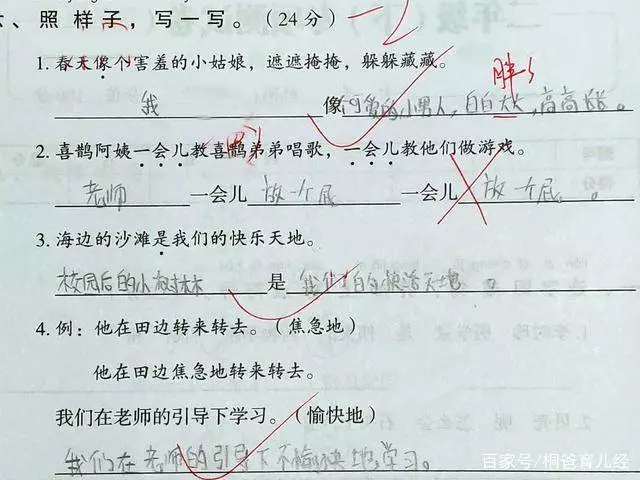 、照样子，写一写。（24分） -2
1. 春天像个害羞的小姑娘，遮遮掩掩，躲躲藏藏。
我 像 可爱的小男人，白白大大，高高长长。
胖
2. 喜鹊阿姨一会儿教喜鹊弟弟唱歌，一会儿教他们做游戏。
老师 一会儿 放一个屁 一会儿 放一个屁。
3. 海边的沙滩是我们的快乐天地。
校园后的小树林 是 我们的快活天地。
4. 例：他在田边转来转去。（焦急地）
他在田边焦急地转来转去。
我们在老师的引导下学习。（愉快地）
我们在老师的引导下不愉快地学习。
百家号/桐爸育儿经